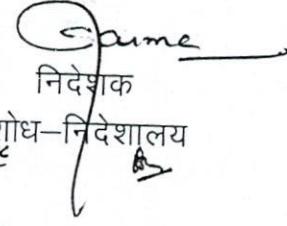 निदेशक
शोध–निदेशालय